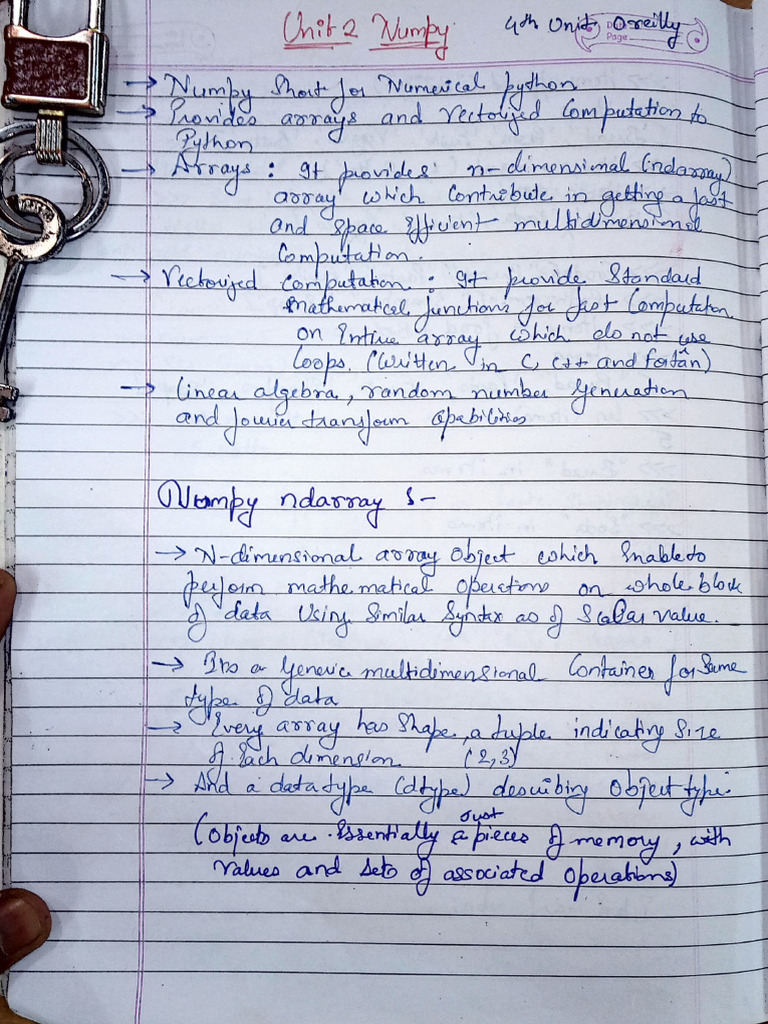 Unit 2 Numpy
4th Unit Oreilly
Page
→ Numpy Short for Numerical python
→ Provides arrays and Vectorized Computation to
Python
→ Arrays : It provides n-dimensional (ndarray)
array which Contribute in getting a fast
and space Efficient multidimensional
Computation.
→ Vectorized Computation : It provide Standard
Mathematical functions for fast Computation
on Entire array which do not use
loops. (Written in C, C++ and Fortan)
→ linear algebra, random number Generation
and fourier transform Capabilities
Numpy ndarray :-
→ N-dimensional array Object which Enable to
perform mathematical Operations on whole block
of data Using Similar Syntax as of Scalar value.
→ Its a Generic multidimensional Container for Same
type of data
→ Every array has Shape, a tuple indicating Size
of Each dimension (2,3)
→ And a datatype (dtype) describing Object type.
Just
(Objects are Essentially pieces of memory, with
values and sets of associated Operations)